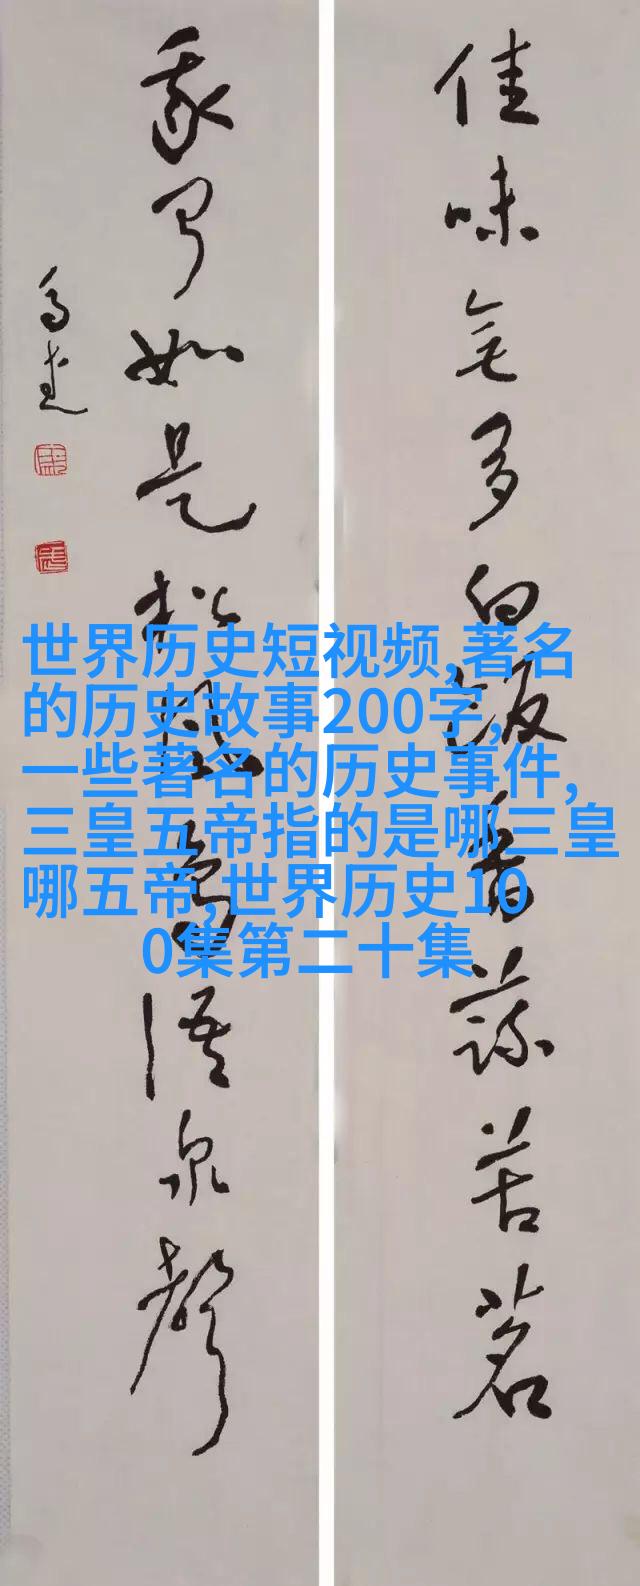 佳味無多白飯香蔬苦茗
我聞如是松風鳥語泉聲
世界历史短视频,著名
的历史故事200字,
一些著名的历史事件,
三皇五帝指的是哪三皇
哪五帝,世界历史10
0集第二十集